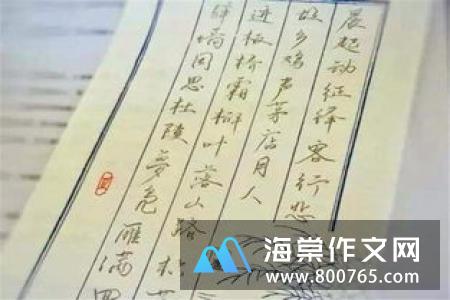 晨起动征铎客行悲
故乡鸡声茅店月人
迹板桥霜槲叶落山路枳
驿墙因思杜陵梦凫雁满
海棠作文网
www.800765.com